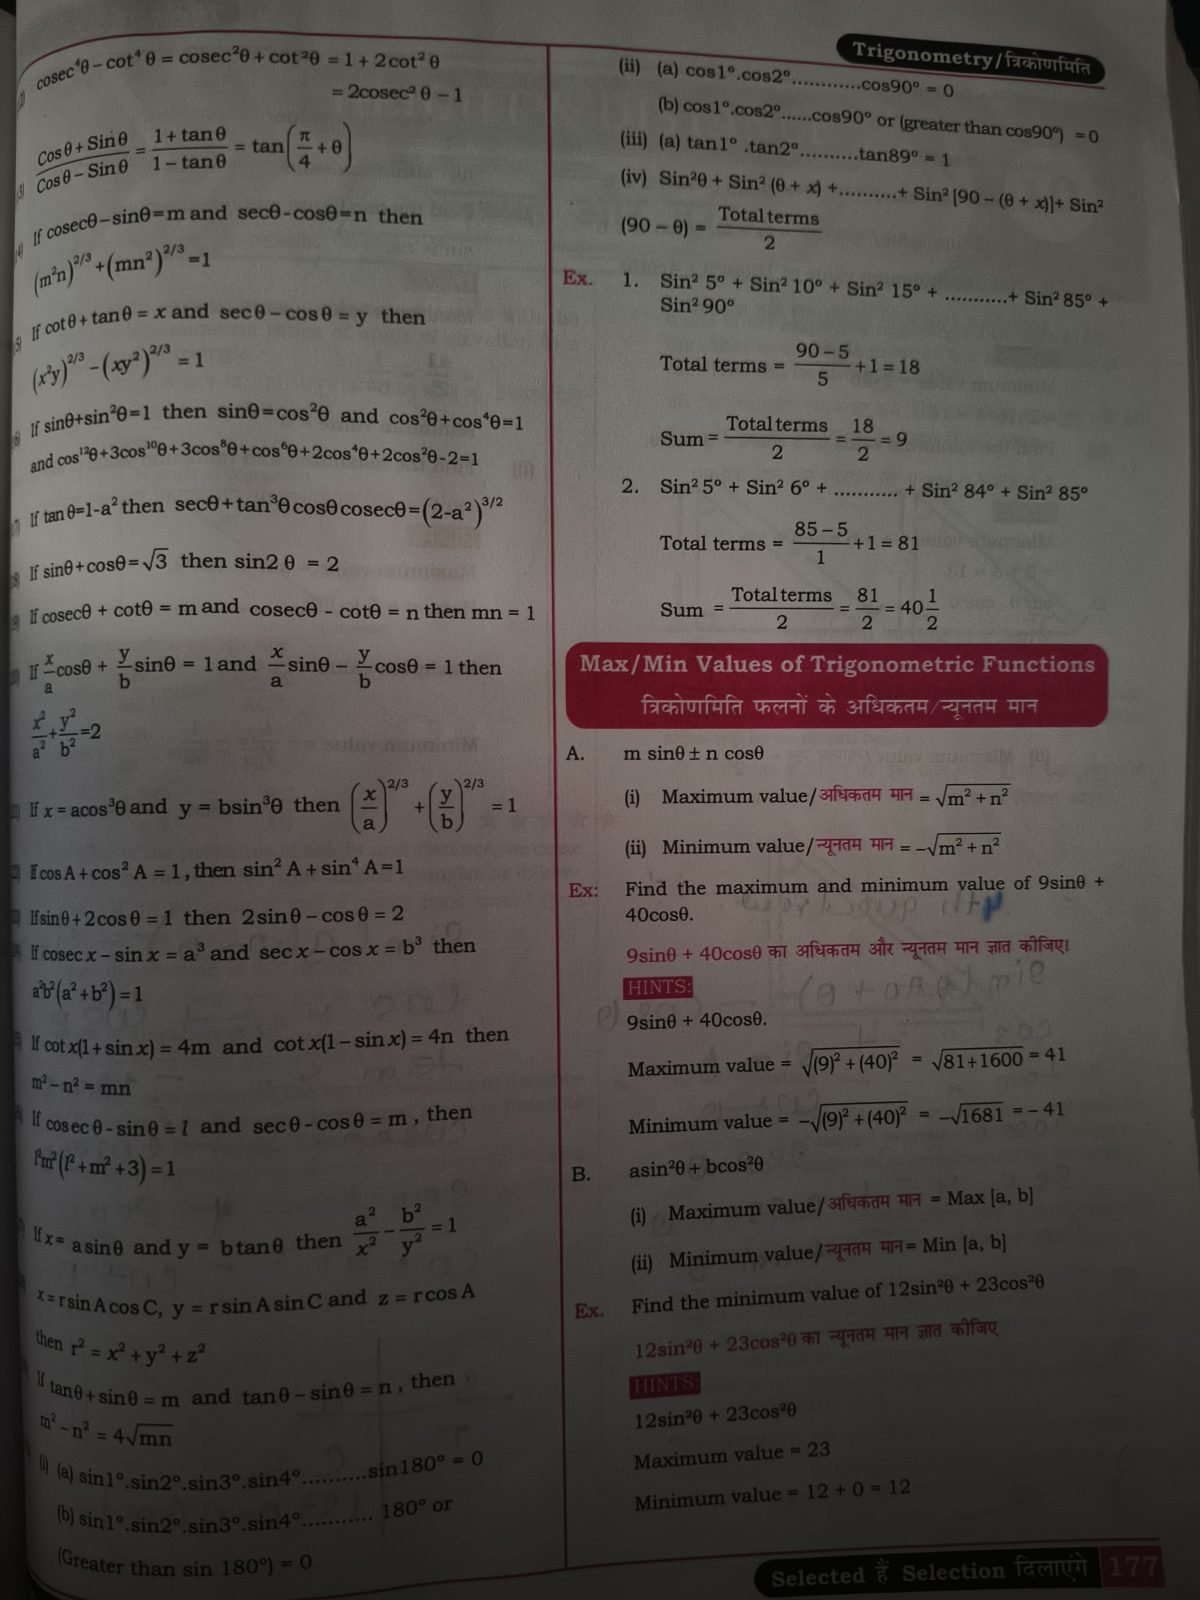 Trigonometry/त्रिकोणमिति
cosec⁴θ – cot⁴ θ = cosec²θ + cot²θ = 1 + 2cot² θ
= 2cosec² θ – 1
(Cosθ + Sinθ)/(Cosθ – Sinθ) = (1 + tanθ)/(1 – tanθ) = tan(π/4 + θ)
If cosecθ – sinθ = m and secθ - cosθ = n then
(m²n)^2/3 + (mn²)^2/3 = 1
If cotθ + tanθ = x and secθ – cosθ = y then
(x²y)^2/3 – (xy²)^2/3 = 1
If sinθ+sin²θ=1 then sinθ=cos²θ and cos²θ+cos⁴θ=1
and cos¹²θ+3cos¹⁰θ+3cos⁸θ+cos⁶θ+2cos⁴θ+2cos²θ-2=1
If tan θ=1-a² then secθ+tan³θcosθcosecθ=(2-a²)^3/2
If sinθ+cosθ=√3 then sin2 θ = 2
If cosecθ + cotθ = m and cosecθ - cotθ = n then mn = 1
If x/a cosθ + y/b sinθ = 1 and x/a sinθ – y/b cosθ = 1 then
x²/a² + y²/b² = 2
If x = acos³θ and y = bsin³θ then (x/a)^2/3 + (y/b)^2/3 = 1
If cos A + cos² A = 1, then sin² A + sin⁴ A=1
If sinθ + 2cosθ = 1 then 2sinθ – cosθ = 2
If cosec x – sin x = a³ and sec x – cos x = b³ then
a²b²(a² + b²) = 1
If cot x(1 + sin x) = 4m and cot x(1 – sin x) = 4n then
m² – n² = mn
If cosec θ - sin θ = l and sec θ - cos θ = m , then
l²m²(l² + m² + 3) = 1
If x = a sinθ and y = b tanθ then a²/x² – b²/y² = 1
x = r sin A cos C, y = r sin A sin C and z = r cos A
then r² = x² + y² + z²
If tanθ + sinθ = m and tanθ – sinθ = n , then
m² – n² = 4√mn
(i) (a) sin1°.sin2°.sin3°.sin4°..........sin180° = 0
(b) sin1°.sin2°.sin3°.sin4°........... 180° or
(Greater than sin 180°) = 0
(ii) (a) cos1°.cos2°............cos90° = 0
(b) cos1°.cos2°......cos90° or (greater than cos90°) = 0
(iii) (a) tan1° .tan2°..........tan89° = 1
(iv) Sin²θ + Sin² (θ + x) +..........+ Sin² [90 – (θ + x)]+ Sin²
(90 – θ) = Total terms/2
Ex. 1. Sin² 5° + Sin² 10° + Sin² 15° + ...........+ Sin² 85° +
Sin² 90°
Total terms = (90 – 5)/5 + 1 = 18
Sum = Total terms/2 = 18/2 = 9
2. Sin² 5° + Sin² 6° + ........... + Sin² 84° + Sin² 85°
Total terms = (85 – 5)/1 + 1 = 81
Sum = Total terms/2 = 81/2 = 40 1/2
Max/Min Values of Trigonometric Functions
त्रिकोणमिति फलनों के अधिकतम/न्यूनतम मान
A. m sinθ ± n cosθ
(i) Maximum value/अधिकतम मान = √(m² + n²)
(ii) Minimum value/न्यूनतम मान = –√(m² + n²)
Ex: Find the maximum and minimum value of 9sinθ +
40cosθ.
9sinθ + 40cosθ का अधिकतम और न्यूनतम मान ज्ञात कीजिए।
HINTS:
9sinθ + 40cosθ.
Maximum value = √((9)² + (40)²) = √(81+1600) = 41
Minimum value = –√((9)² + (40)²) = –√1681 = – 41
B. asin²θ + bcos²θ
(i) Maximum value/अधिकतम मान = Max [a, b]
(ii) Minimum value/न्यूनतम मान = Min [a, b]
Ex. Find the minimum value of 12sin²θ + 23cos²θ
12sin²θ + 23cos²θ का न्यूनतम मान ज्ञात कीजिए
HINTS:
12sin²θ + 23cos²θ
Maximum value = 23
Minimum value = 12 + 0 = 12
Selected हैं Selection दिलाएंगे 177